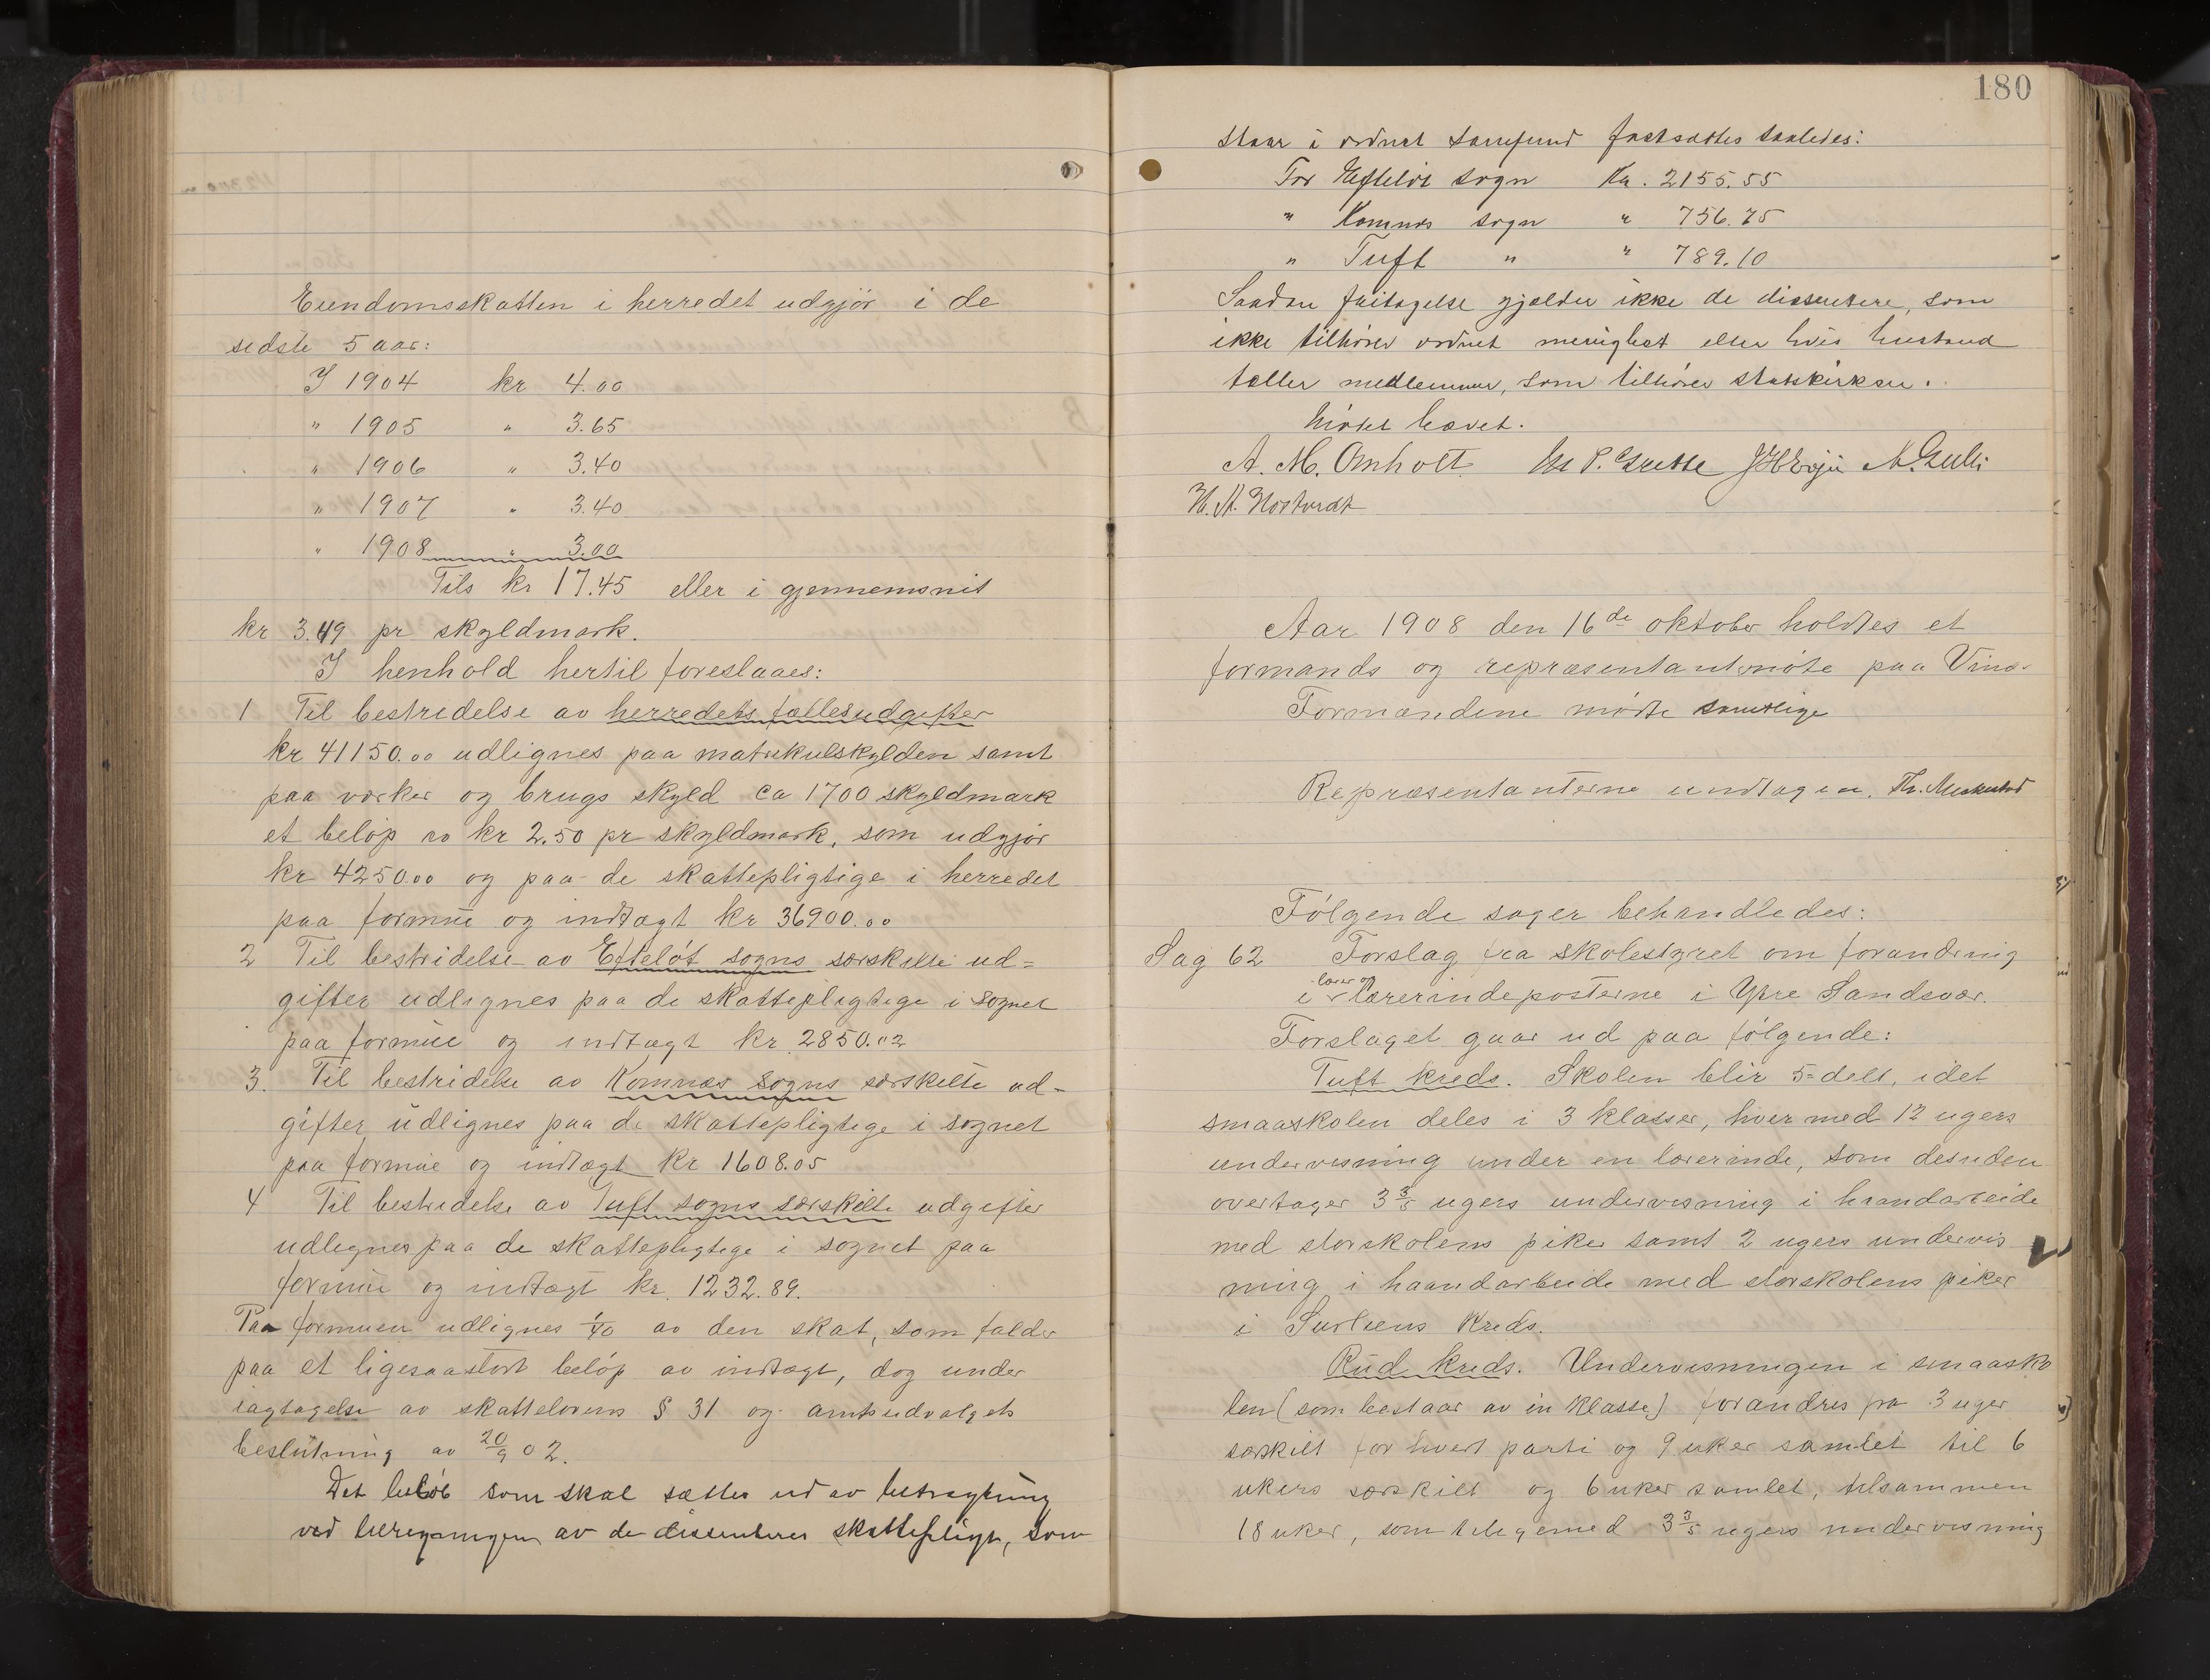 Eiendomsskatten i herredet udgjør i de
sidste 5 aar:
I 1904 kr 4.00
" 1905 " 3.65
" 1906 " 3.40
" 1907 " 3.40
" 1908 " 3.00
Tils kr 17.45 eller i gjennemsnit
kr 3.49 pr skyldmark.
I henhold hertil foreslaaes:
1 Til bestridelse av herredets fællesudgifter
kr 41150.00 udlignes paa matrikulskylden samt
paa verker og brugs skyld ca 1700 skyldmark
et beløp av kr 2.50 pr skyldmark, som udgjør
kr 4250.00 og paa de skattepligtige i herredet
paa formue og indtægt kr 36900.00
2 Til bestridelse av Efteløt sogns særskilte ud=
gifter udlignes paa de skattepligtige i sognet
paa formue og indtægt kr 2850.02
3. Til bestridelse av Komnes sogns særskilte ud=
gifter udlignes paa de skattepligtige i sognet
paa formue og indtægt kr 1608.05
4 Til bestridelse av Tuft sogns særskilte udgifter
udlignes paa de skattepligtige i sognet paa
formue og indtægt kr. 1232.89.
Paa formuen udlignes 1/40 av den skat, som falder
paa et ligesaastort beløp av indtægt, dog under
iagtagelse av skattelovens § 31 og amtsudvalgets
beslutning av 20/9 02.
Det beløb som skal sættes ud av betragtning
ved beregningen av de dissenteres skattepligt, som
180
staar i ordnet samfund fastsættes saaledes:
For Efteløt sogn Kr. 2155.55
" Komnes sogn " 756.75
" Tuft " " 789.10
Saadan fritagelse gjælder ikke de dissentere, som
ikke tilhører ordnet menighet eller hvis hustand
tæller medlemmer, som tilhører statskirken.
Mødet hævet.
A. M. Omholt P. Grette
H. A. Hostvedt
Aar 1908 den 16de oktober holdtes et
formands og repræsentantmøte paa
Formændene møtte samtlige
Repræsentanterne undtagen. Th.
Følgende sager behandledes:
Sag 62 Forslag fra skolestyret om forandring
lærer og
i lærerindeposterne i Ytre Sandsvær.
Forslaget gaar ud paa følgende:
Tuft kreds. Skolen blir 5-delt, idet
smaaskolen deles i 3 klasser, hver med 12 ugers
undervisning under en lærerinde, som desuden
overtager 3 3/5 ugers undervisning i haandarbeide
med storskolens piker samt 2 ugers undervis
ning i haandarbeide med storskolens piker
i kreds.
Rud kreds. Undervisningen i smaasko
len (som bestaar av en klasse) forandres fra 3 uger
særskilt for hvert parti og 9 uker samlet til 6
ukers særskilt og 6 uker samlet, tilsammen
18 uker, som tilligemed 3 3/5 ugers undervisning